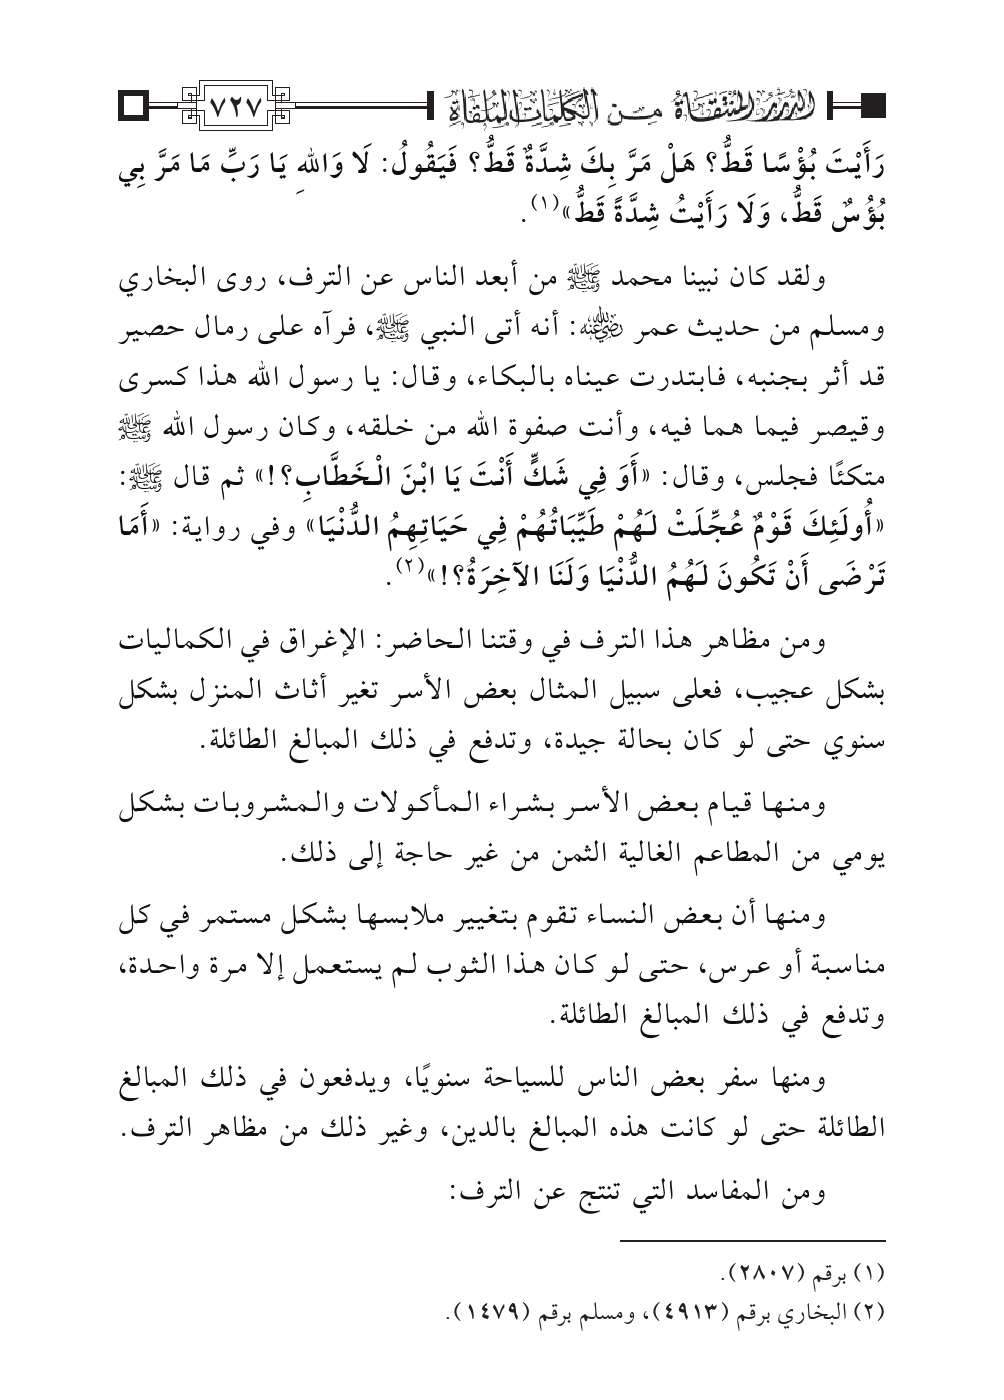 الدرر المنتقاة من الكلمات الملقاة
٧٢٧
رَأَيْتَ بُؤْسًا قَطُّ؟ هَلْ مَرَّ بِكَ شِدَّةٌ قَطُّ؟ فَيَقُولُ: لَا وَاللهِ يَا رَبِّ مَا مَرَّ بِي
بُؤُسٌ قَطُّ، وَلَا رَأَيْتُ شِدَّةً قَطُّ»(١).
ولقد كان نبينا محمد ﷺ من أبعد الناس عن الترف، روى البخاري
ومسلم من حديث عمر رضي الله عنه: أنه أتى النبي ﷺ، فرآه على رمال حصير
قد أثر بجنبه، فابتدرت عيناه بالبكاء، وقال: يا رسول الله هذا كسرى
وقيصر فيما هما فيه، وأنت صفوة الله من خلقه، وكان رسول الله ﷺ
متكئًا فجلس، وقال: «أَوَ فِي شَكٍّ أَنْتَ يَا ابْنَ الْخَطَّابِ؟!» ثم قال ﷺ:
«أُولَئِكَ قَوْمٌ عُجِّلَتْ لَهُمْ طَيِّبَاتُهُمْ فِي حَيَاتِهِمُ الدُّنْيَا» وفي رواية: «أَمَا
تَرْضَى أَنْ تَكُونَ لَهُمُ الدُّنْيَا وَلَنَا الآخِرَةُ؟!»(٢).
ومن مظاهر هذا الترف في وقتنا الحاضر: الإغراق في الكماليات
بشكل عجيب، فعلى سبيل المثال بعض الأسر تغير أثاث المنزل بشكل
سنوي حتى لو كان بحالة جيدة، وتدفع في ذلك المبالغ الطائلة.
ومنها قيام بعض الأسر بشراء المأكولات والمشروبات بشكل
يومي من المطاعم الغالية الثمن من غير حاجة إلى ذلك.
ومنها أن بعض النساء تقوم بتغيير ملابسها بشكل مستمر في كل
مناسبة أو عرس، حتى لو كان هذا الثوب لم يستعمل إلا مرة واحدة،
وتدفع في ذلك المبالغ الطائلة.
ومنها سفر بعض الناس للسياحة سنويًا، ويدفعون في ذلك المبالغ
الطائلة حتى لو كانت هذه المبالغ بالدين، وغير ذلك من مظاهر الترف.
ومن المفاسد التي تنتج عن الترف:
(١) برقم (٢٨٠٧).
(٢) البخاري برقم (٤٩١٣)، ومسلم برقم (١٤٧٩).